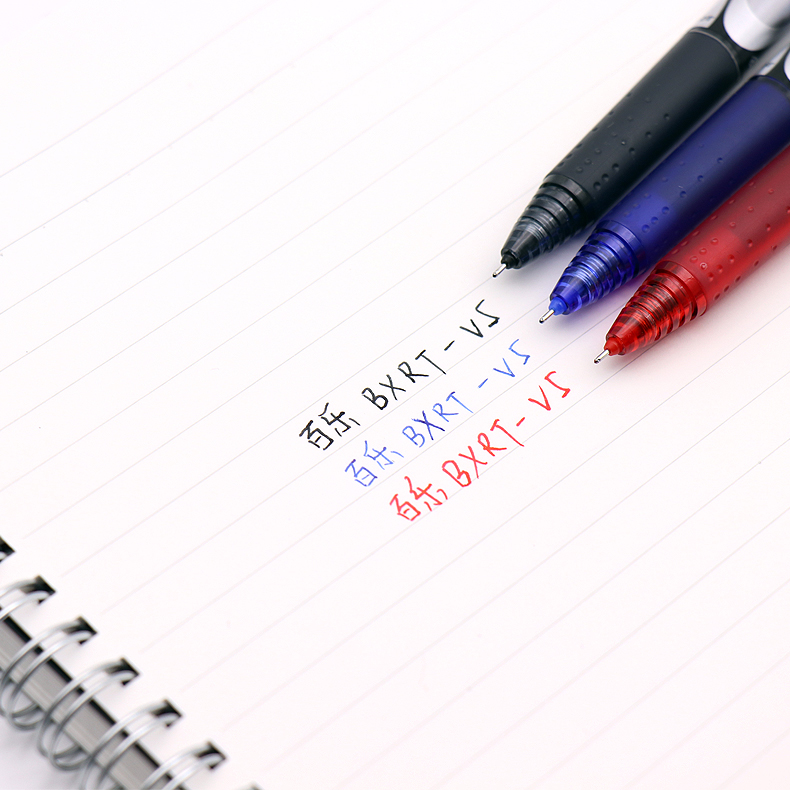 百乐 BXRT-V5
百乐 BXRT-V5
百乐 BXRT-V5